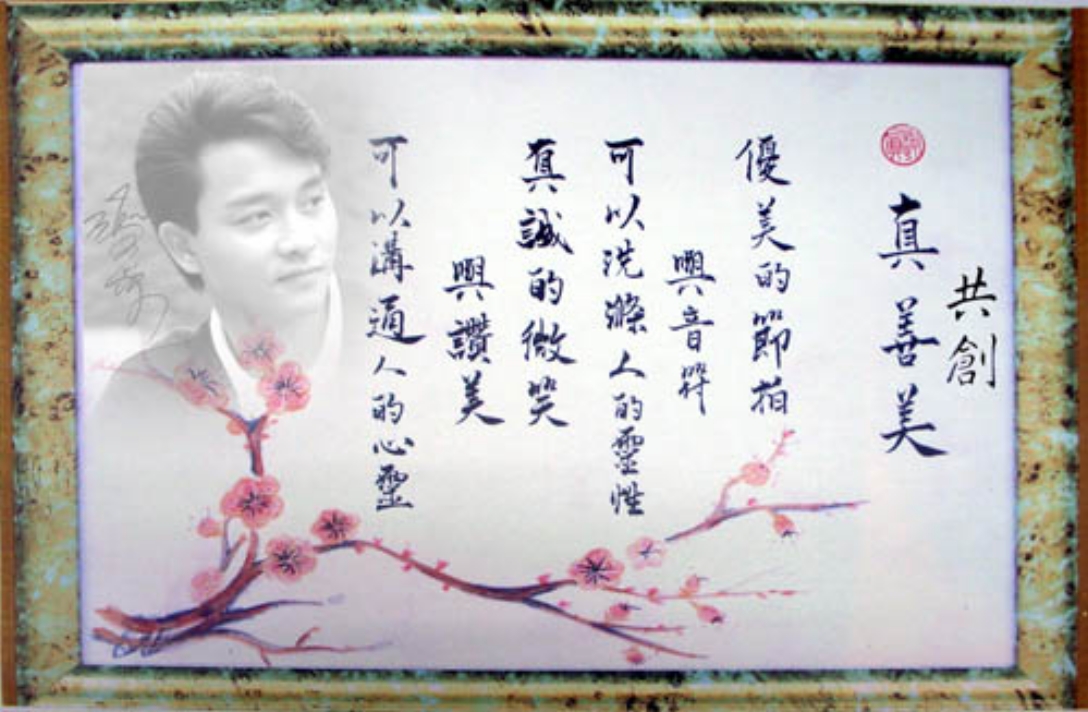 共創
真善美
優美的節拍
與音符
可以洗滌人的靈性
真誠的微笑
與讚美
可以溝通人的心靈